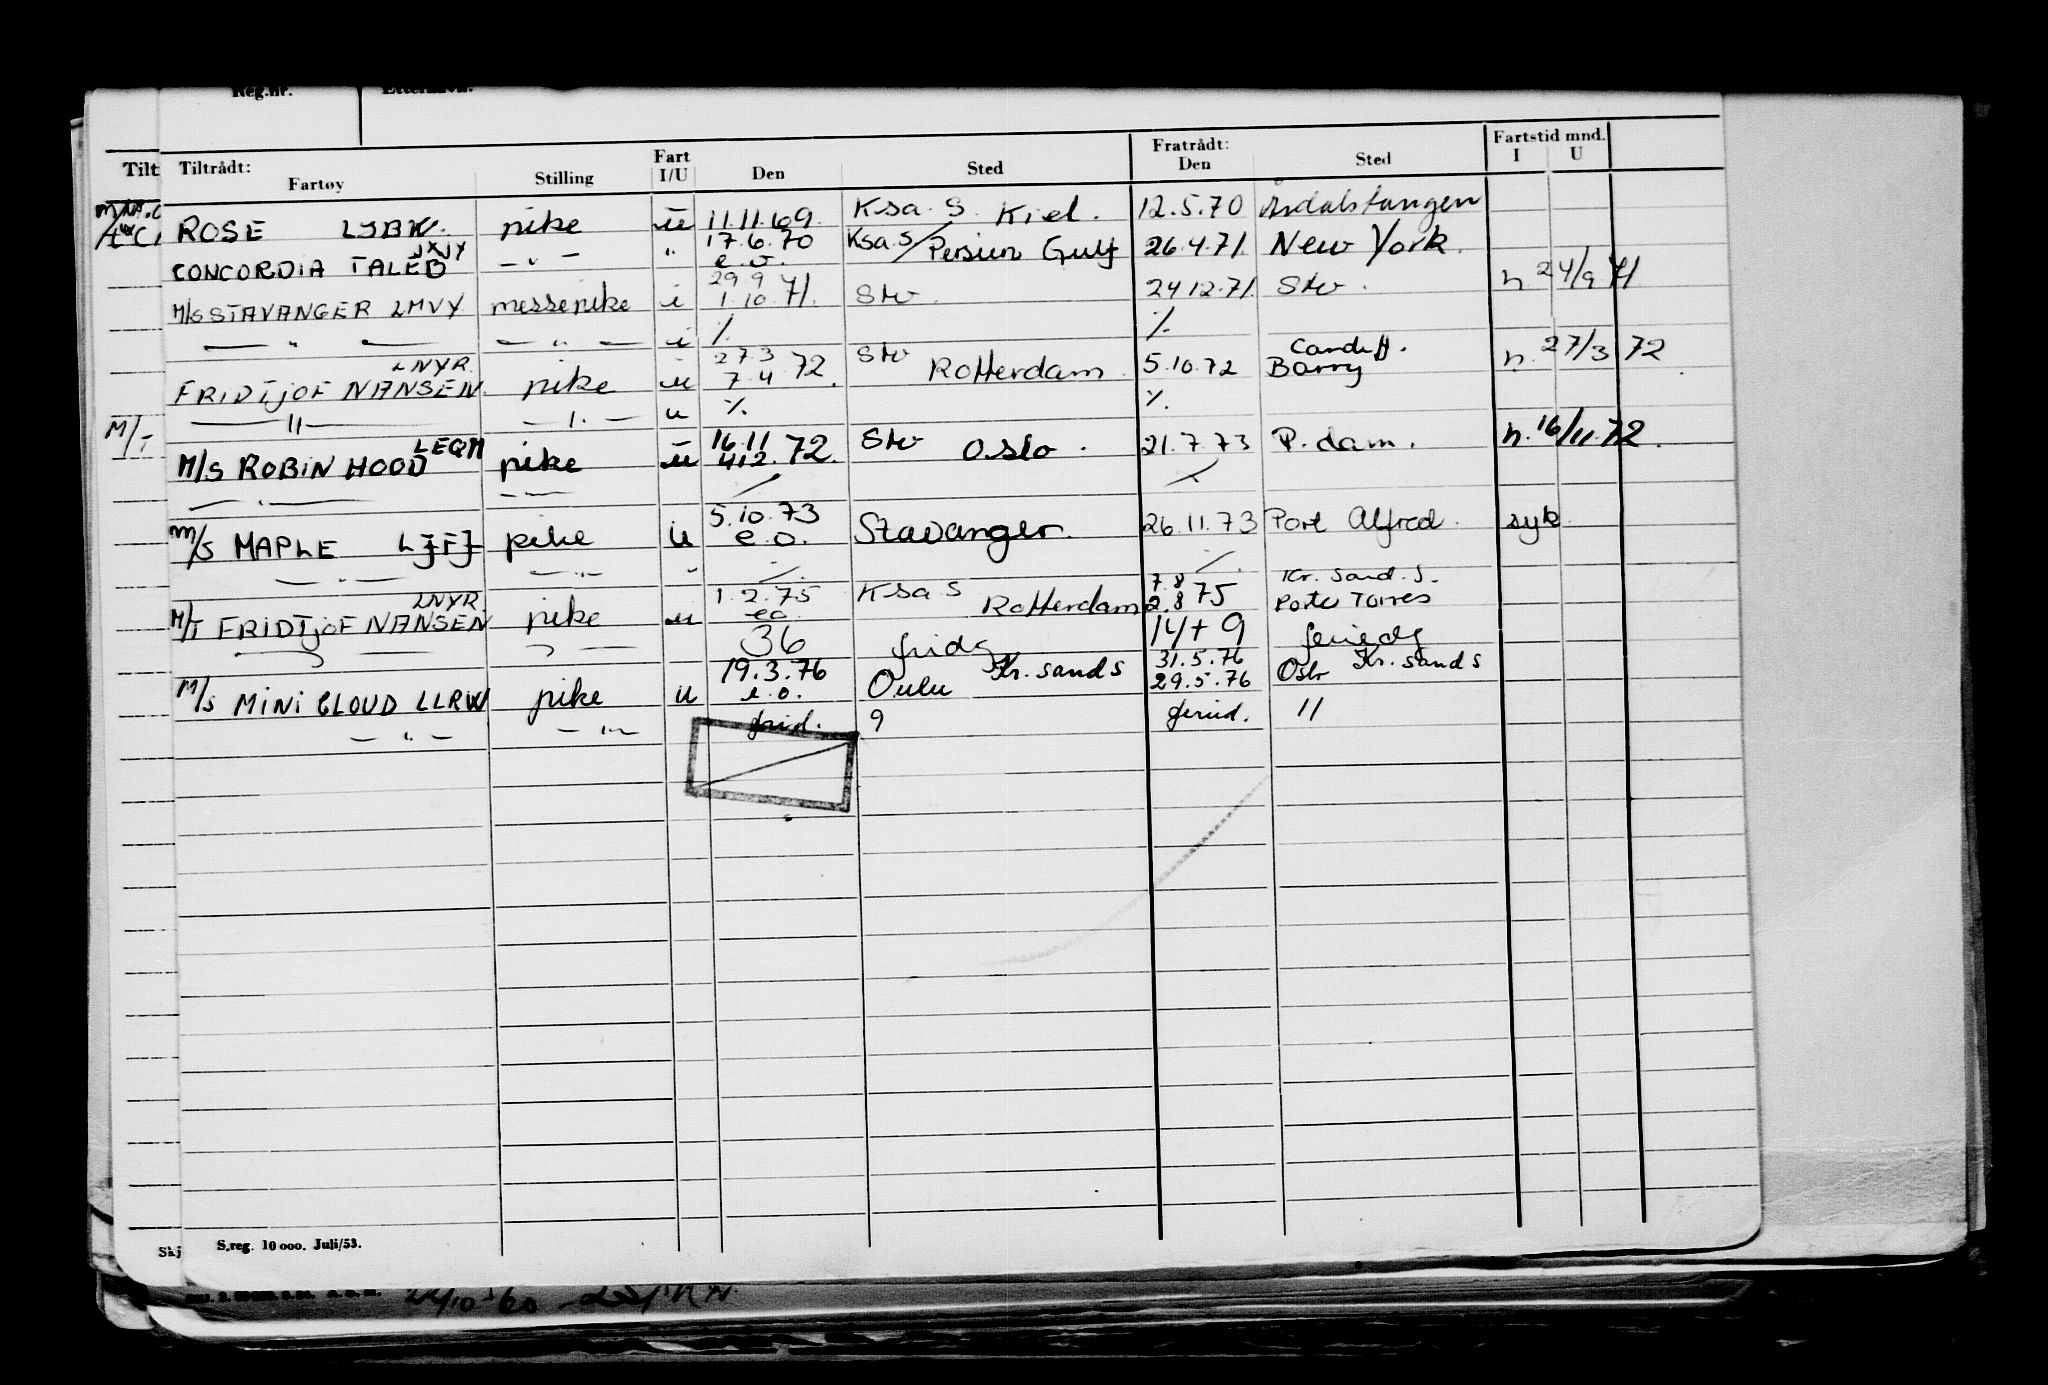 Reg.nr. Etternavn.
Tiltrådt: Fart Fratrådt: Fartstid mnd.
Fartøy Stilling I/U Den Sted Den Sted I U
ROSE LJBW. pike u 11.11.69. Ksa. S. Kiel. 12.5.70 Årdalstangen
17.6.70
CONCORDIA TALEB JXJY — " — " e.o. Ksa.S/Persian Gulf 26.4.71. New York.
29.9
M/S STAVANGER LMVY messepike i 1.10.71. Stv. 24.12.71. Stv. h. 24/9 71
— " — — " — i ⁒ ⁒
LNYR. 27.3 Stv Cardiff.
FRIDTJOF NANSEN. pike u 7.4 72. Rotterdam. 5.10.72 Barry h. 27/3 72
— " — — " — u ⁒ ⁒
M/T
LEQM 16.11 Stv
M/S ROBIN HOOD pike u 4.12.72. Oslo. 21.7.73 R.dam. h. 16/11.72.
— " — — " — / /
5.10.73
M/S MAPLE LJFJ pike u e.o. Stavanger. 26.11.73 Port Alfred. syk
— " — — " — " / /
LNYR 1.2.75 Ksa S 7.8 Kr.sand.S.
M/T FRIDTJOF NANSEN pike u eo. Rotterdam 2.8 75 Porto Torres
— " — — " — 36 fridg 14+9 feriedg
19.3.76 Kr.sand S 31.5.76 Kr.sand S
M/S MINI CLOUD LLRW pike u e.o. Oulu 29.5.76 Oslo
— " — — " — frid. 9 feried. 11
S.reg. 10 000. Juli/53.